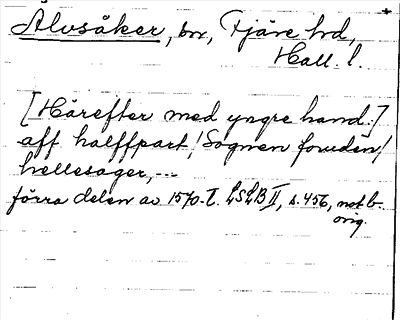 Alvsåker, sn, Fjäre hd,
Hall. l.
[Härefter med yngre hand:]
aff halffpart / Sognen foruden /
hellesager, ---
förra delen av 1570-t. LSLB II, s. 456, not b.
orig.